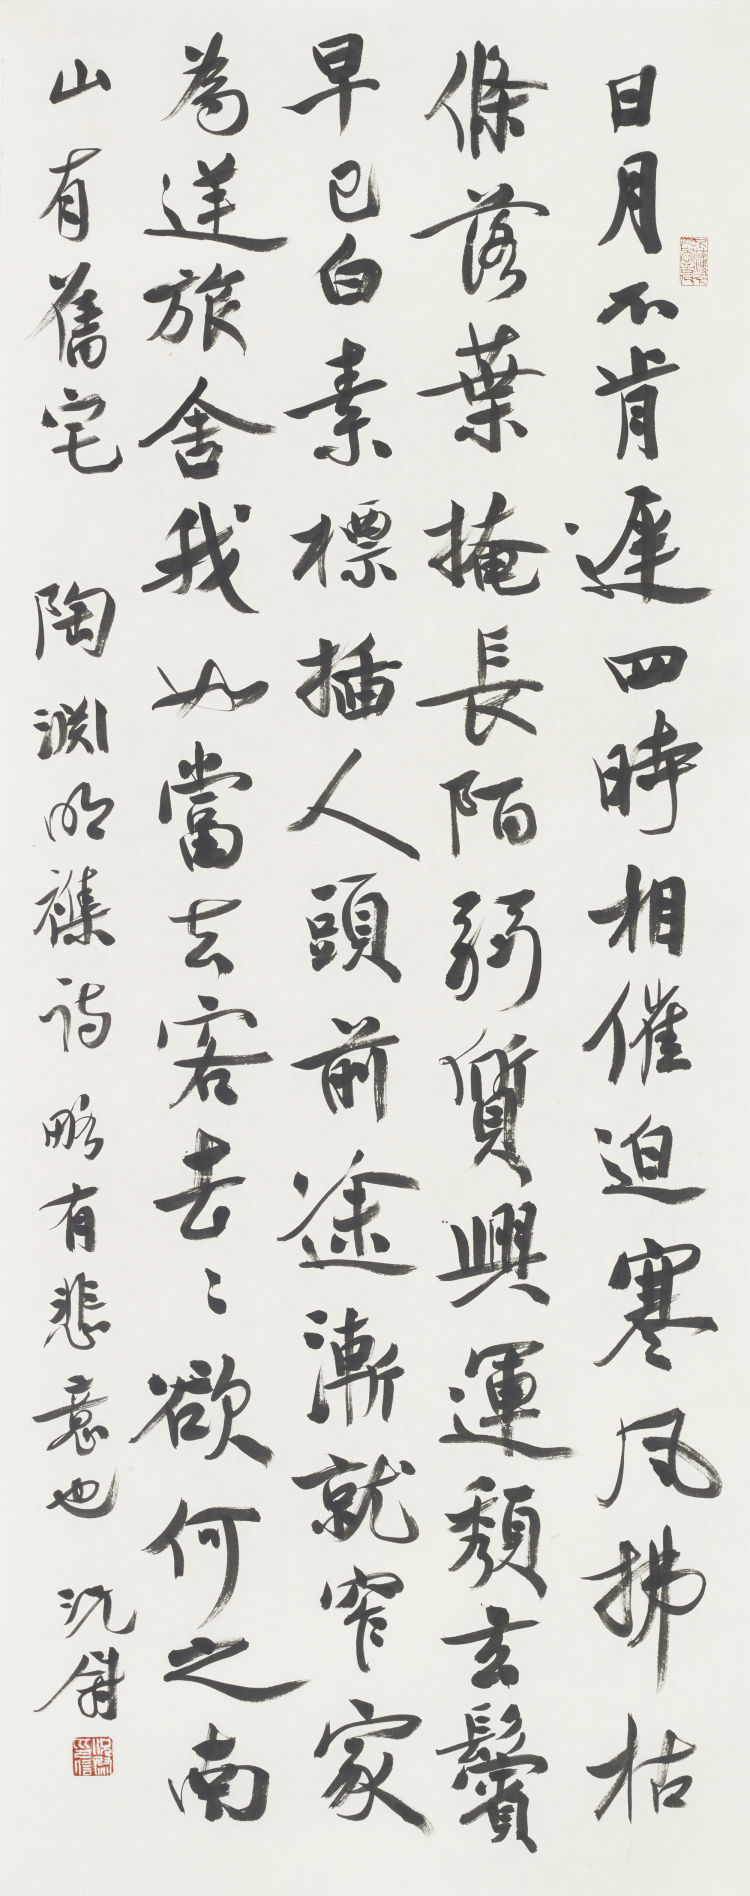 日月不肯遲四時相催迫寒風拂枯
條落葉掩長陌弱質興運頹玄鬢
早已白素標插人頭前途漸就窄家
為逆旅舍我如當去客去〻欲何之南
山有舊宅 陶淵明襍詩 略有悲意也 沈